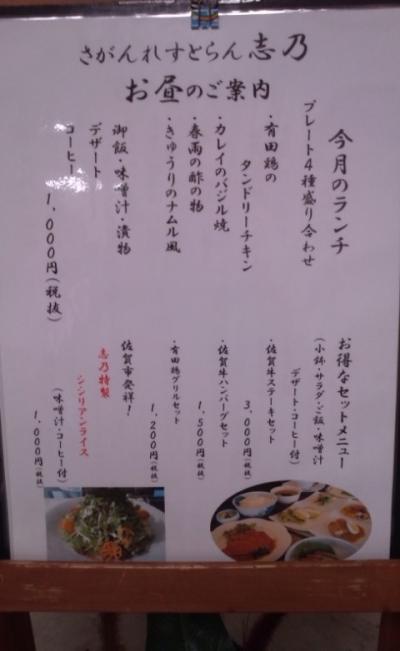 さがんれすとらん志乃
お昼のご案内
今月のランチ
プレート4種盛り合わせ
・有田鶏の
タンドリーチキン
・カレイのバジル焼
・春雨の酢の物
・きゅうりのナムル風
御飯・味噌汁・漬物
デザート
コーヒー
1,000円(税抜)
お得なセットメニュー
(小鉢・サラダ・ご飯・味噌汁
デザート・コーヒー付)
・佐賀牛ステーキセット
3,000円(税抜)
・佐賀牛ハンバーグセット
1,500円(税抜)
・有田鶏グリルセット
1,200円(税抜)
佐賀市発祥!
志乃特製
シシリアンライス
(味噌汁・コーヒー付)
1,000円(税抜)